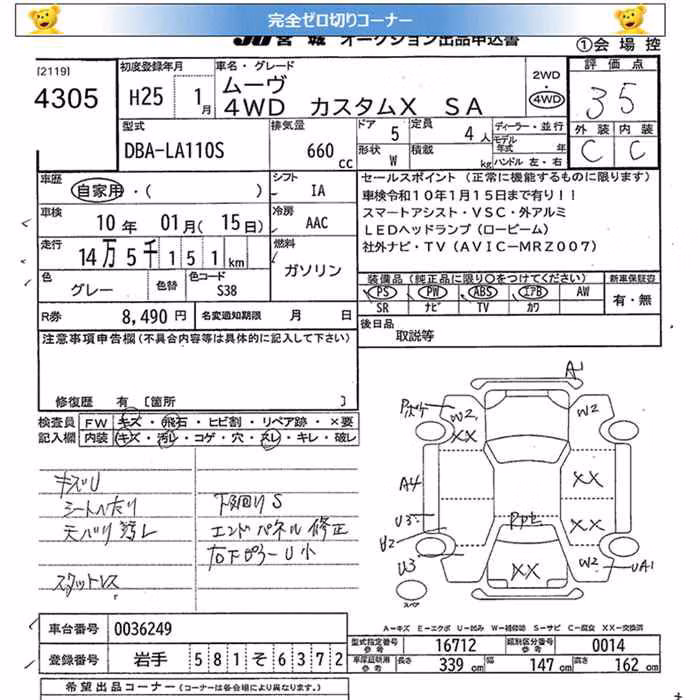 完全ゼロ切りコーナー
JU宮城 オークション出品申込書
①会場控
[2119]
4305
初度登録年月
H25 1月
車名・グレード
ムーヴ
4WD カスタムX SA
2WD
・
4WD
評価点
35
外装 内装
C C
型式
DBA-LA110S
排気量
660 cc
ドア 5
定員 4人
ディーラー・並行
モデル年式 年
形状 W
積載 kg
ハンドル 左・右
車歴
自家用・( )
シフト
IA
車検
10年 01月(15日)
冷房
AAC
走行
14万5千151km
燃料
ガソリン
色
グレー
色替
色コード
S38
R券
8,490円
名変通知期限 月 日
セールスポイント(正常に機能するものに限ります)
車検令和10年1月15日まで有り!!
スマートアシスト・VSC・外アルミ
LEDヘッドランプ(ロービーム)
社外ナビ・TV(AVIC-MRZ007)
装備品(純正品に限り〇をつけてください)
新車保証書
PS PW ABS エアB AW
SR ナビ TV カワ
有・無
後日品
取説等
注意事項申告欄(不具合内容等は具体的に記入して下さい)
修復歴 有 [箇所 ]
検査員記入欄
FW キズ・飛石・ヒビ割・リペア跡・×要
内装 キズ・汚レ・コゲ・穴・スレ・キレ・破レ
キズU
シートへたり
天バリ汚レ
スタットレス
下廻りS
エンドパネル修正
右下ピラーU小
A1
W2
XX
W2
A4
XX
U3
XX
U3
W2
UA1
XX
スペア
A-キズ E-エクボ U-凹み W-補修跡 S-サビ C-腐食 XX-交換済
車台番号 0036249
登録番号 岩手 581そ6372
型式指定番号 参考 16712
類別区分番号 参考 0014
車庫証明用 参考 長さ 339cm 幅 147cm 高さ 162cm
希望出品コーナー(コーナーは各会場により異なります。)